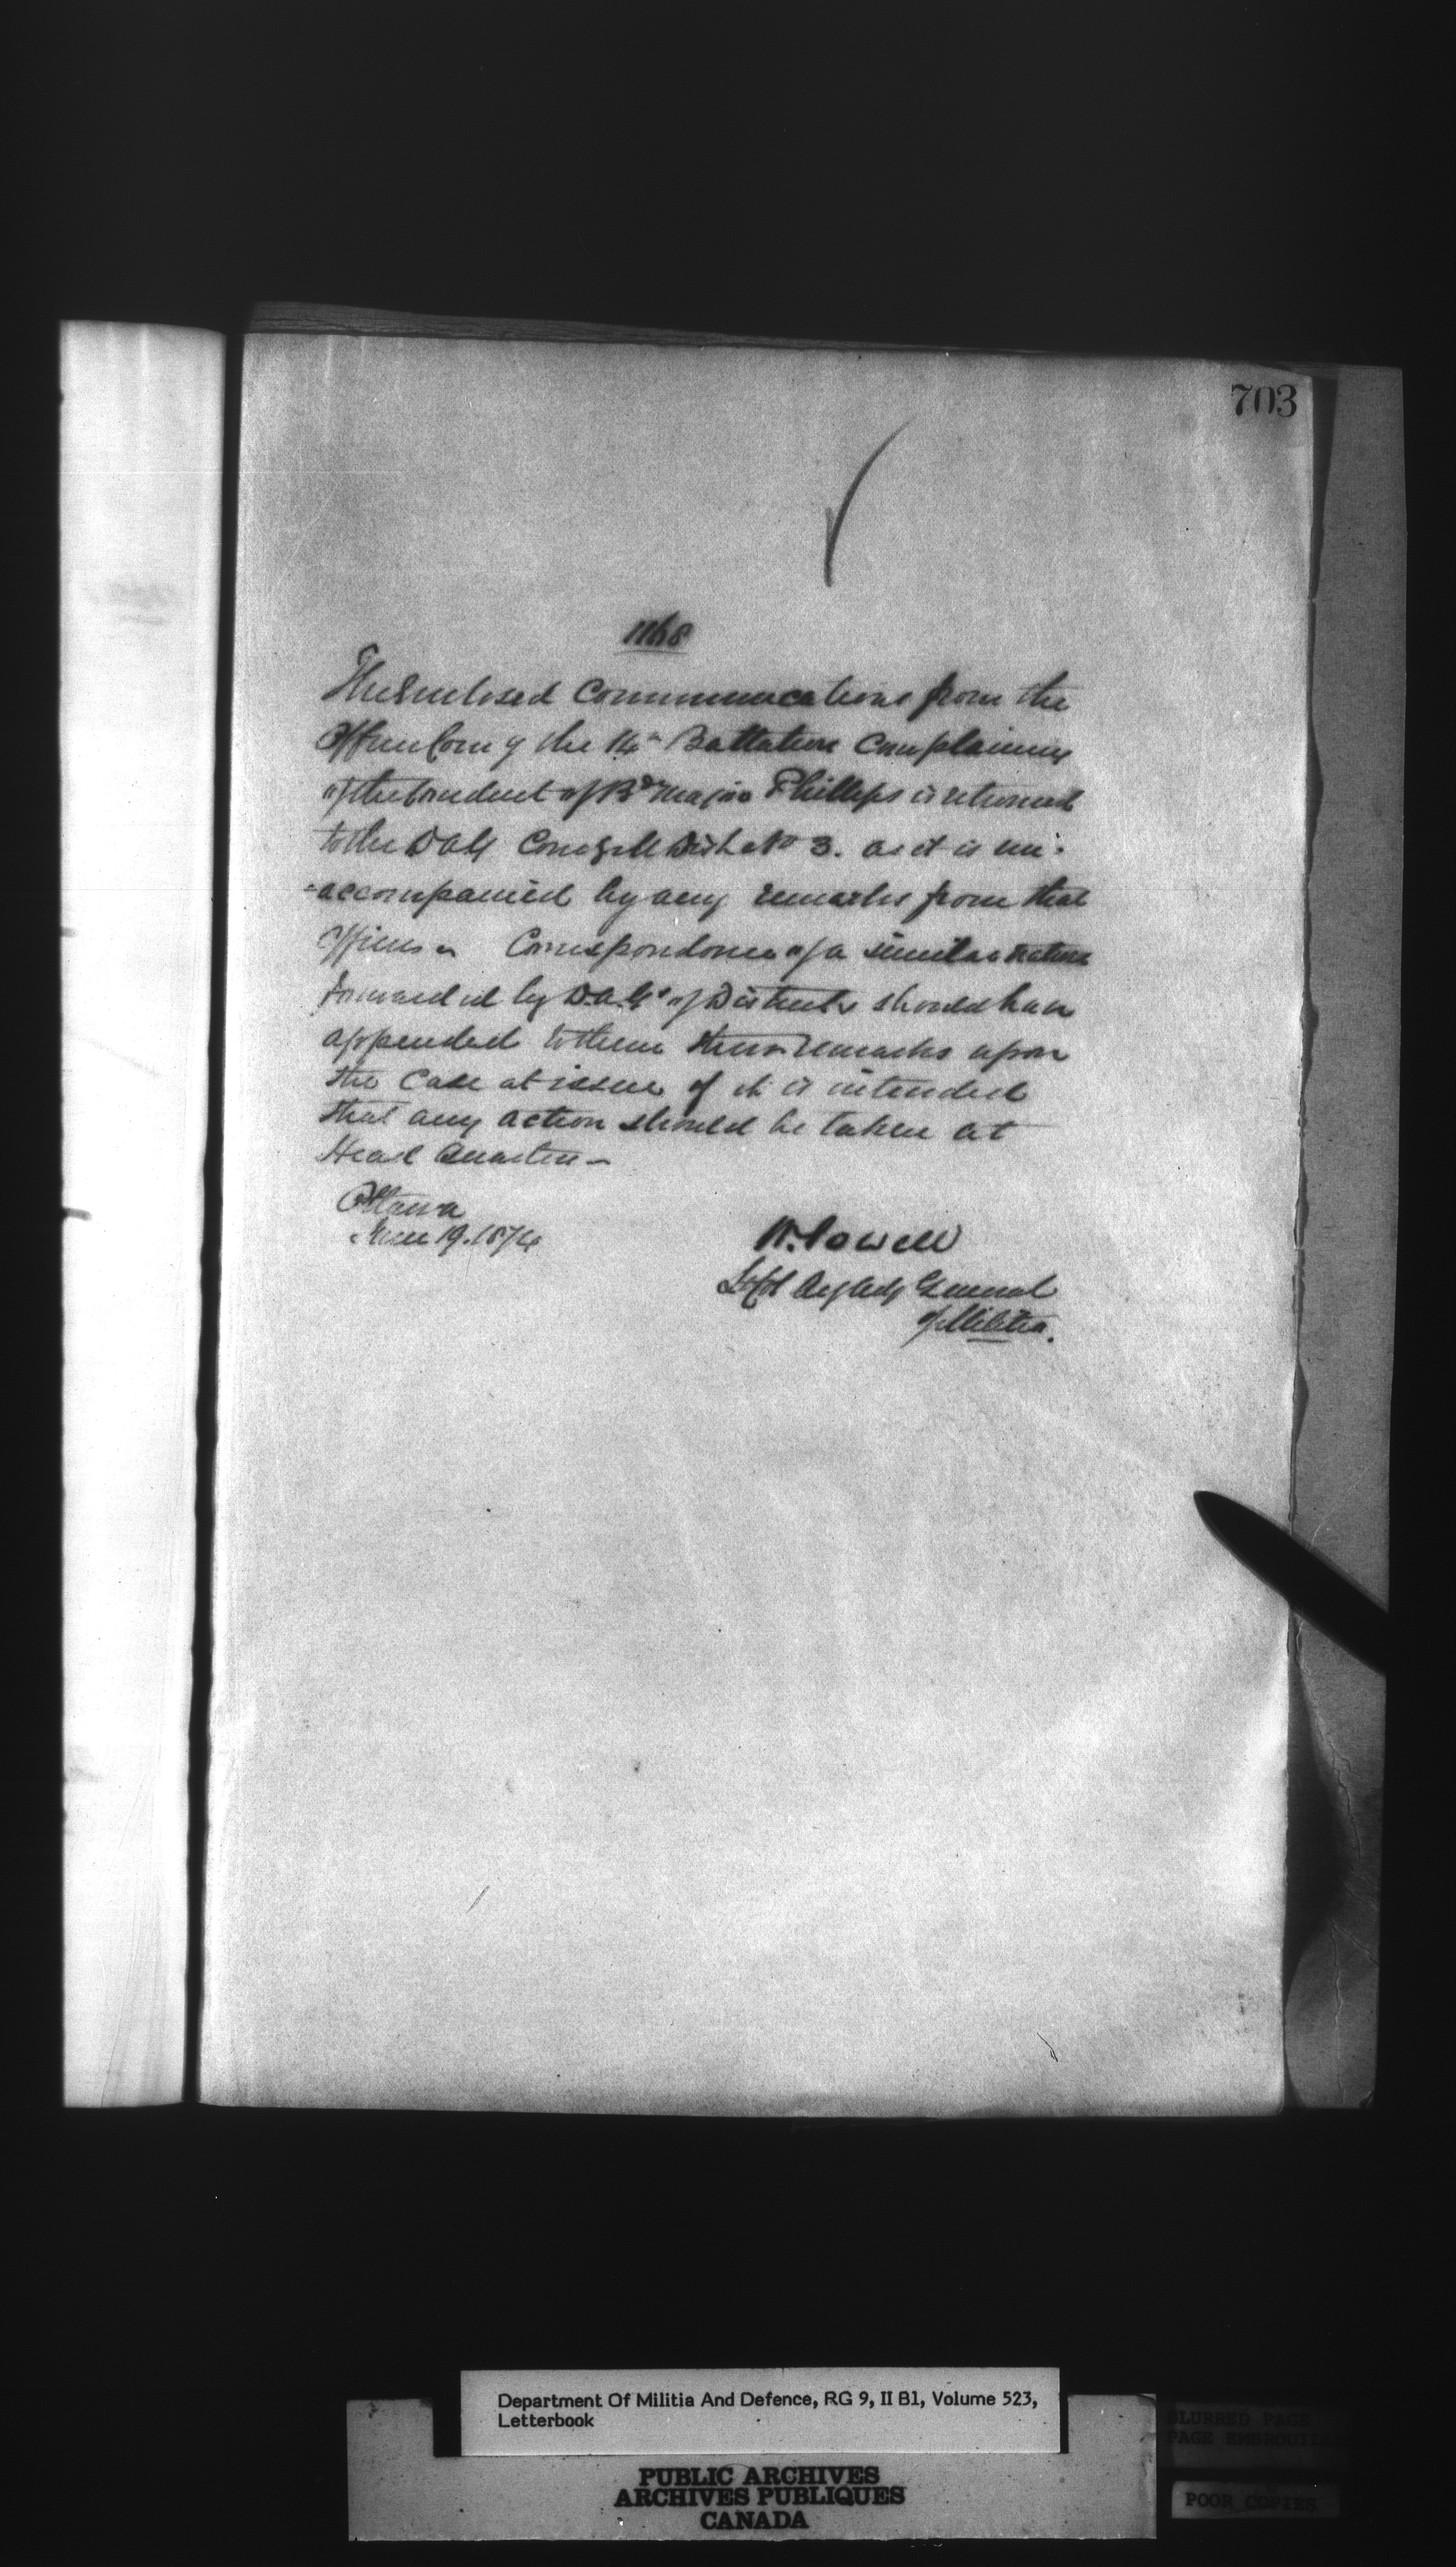 703
1168
The Enclosed Communications from the
Officer Com g the 16th Battalion Complaining
of the Conduct of Bt Major Phillips is returned
to the DAG Comg Mil Dist No 3. as it is un-
-accompanied by any remarks from that
Officer. Correspondence of a similar nature
forwarded by D.A.G's of Districts should have
appended to them their remarks upon
the Case at issue if it is intended
that any action should be taken at
Head Quarters -
Ottawa
June 19. 1874
W. Powell
Lt Col Actg Adj General
of Militia.
Department Of Militia And Defence, RG 9, II B1, Volume 523,
Letterbook
PUBLIC ARCHIVES
ARCHIVES PUBLIQUES
CANADA
BLURRED PAGE
PAGE EMBROUILLE
POOR COPIES